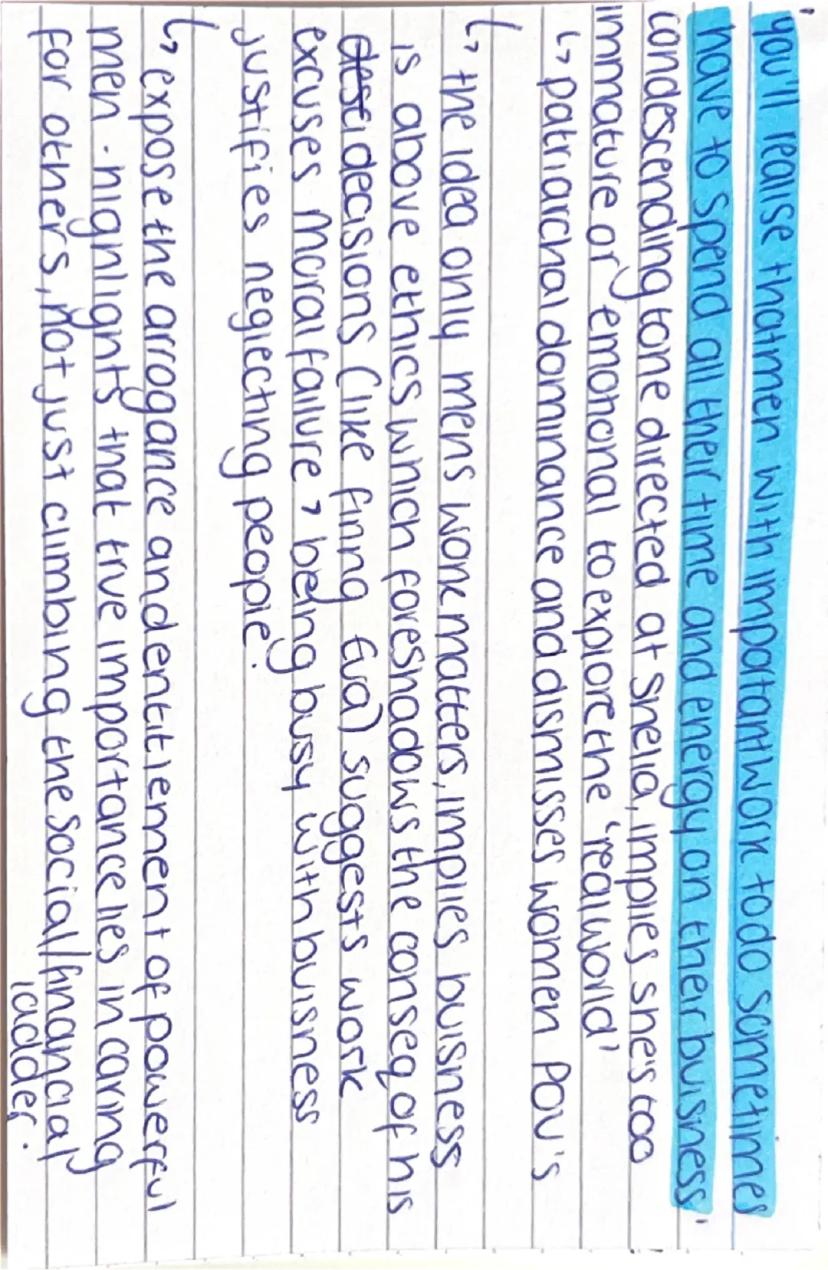 'you'll realise that men with important work to do sometimes
have to spend all their time and energy on their buisness'
condescending tone directed at Sheila, implies she's too
immature or emotional to explore the 'real world'
↳ patriarchal dominance and dismisses women POV's
↳ the idea only mens work matters, implies buisness
is above ethics which foreshadows the conseq of his
desti decisions (like firing Eva) suggests work
excuses moral failure, being busy with buisness
justifies neglecting people.
↳ expose the arrogance and entitlement of powerful
men - highlights that true importance lies in caring
for others, not just climbing the social/financial
ladder.